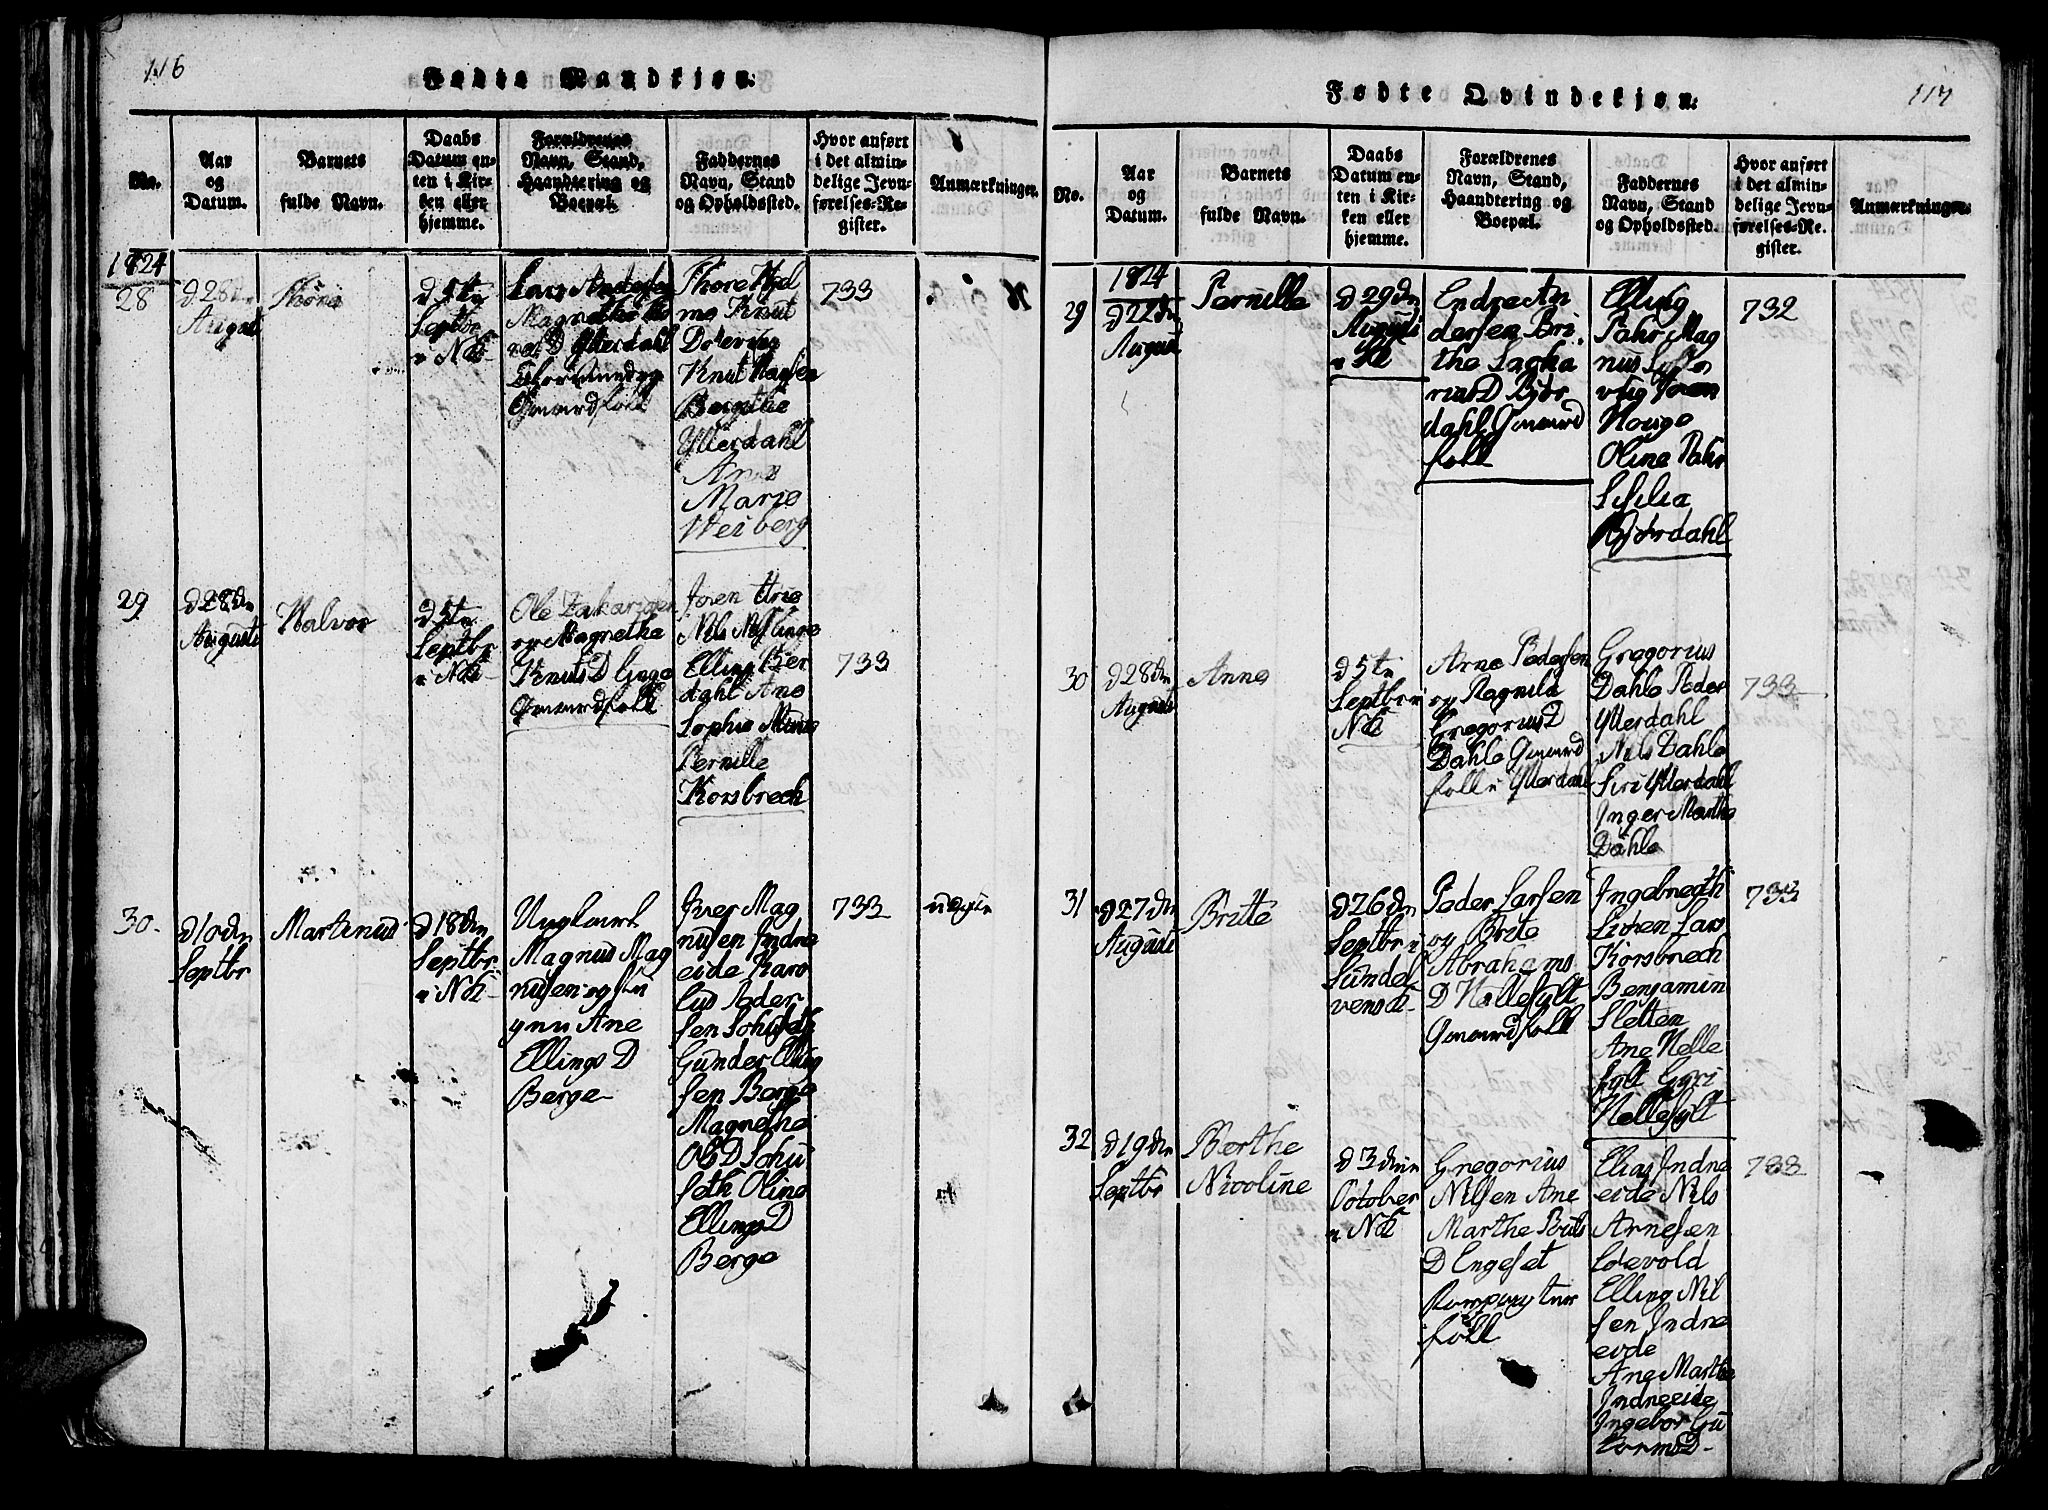 116
Fødte Mandkjøn.
No.
Aar
og
Datum.
Barnets
fulde Navn.
Daabs
Datum en-
ten i Kir-
ken eller
hjemme.
Forældrenes
Navn, Stand,
Haandtering og
Boepæl.
Faddernes
Navn, Stand
og Opholdssted.
Hvor anført
i det almin-
delige Jevn-
førelses-Re-
gister.
Anmærkninger.
1824
28
d 28
August
Thore
d 5tn
Septbr
i Nk
Lars Andersen
Magnethe
D Ytterdahl
Gmaardfolk
Thore Hiel
me Knut
Dolevig
Knut Hansen
Berethe
Ytterdahl
Ane
Marie
Weiberg
733
29
d 28dn
Augusti
Halvor
d 5tn
Septbr
i Nk
Ole Zakariasen
og Magnethe
Knuts D
Gmaardfolk
Joen
Nils
Elling Kier
dahl Ane
Sophie
Pernille
Korsbrech
733
30
d 10dn
Septbr
Martinus
d 18dn
Septbr
i Nk
Ungkarl
Magnus Mag
nusen og
Ane
Ellings D
Berge
Iver Mag
nusen Indre
eide Karo
lus Peder
sen
Gunder Elling
sen Berge
Magnethe
Ole D
seth Oline
Ellings D
Berge
733
uægte
117
Fødte Qvindekjøn.
No.
Aar
og
Datum.
Barnets
fulde Navn.
Daabs
Datum en-
ten i Kir-
ken eller
hjemme.
Forældrenes
Navn, Stand,
Haandtering og
Boepæl.
Faddernes
Navn, Stand
og Opholdssted.
Hvor anført
i det almin-
delige Jevn-
førelses-Re-
gister.
Anmærkninger.
1824
29
d 22dn
August
Pernille
d 29dn
Augusti
Endre An
dersen Bri
the Sacha
rias D Biør
dahl Gmaard
folk
Elling
Magnus
Joen
Houge
Oline
Sisilia
Biørdahl
732
30
d 28dn
Augusti
Anne
d 5tn
Septbr i
Nk
Arne Pedersen
og Ragnild
Gregorius D
Dahle Gmaard
folk i Ytterdahl
Gregorius
Dahle Peder
Ytterdahl
Nils Dahle
Siri Ytterdahl
Inger Marthe
Dahle
733
31
d 27dn
Augusti
Britte
d 26dn
Septbr i
Sundel
vens k
Peder Larsen
og Brite
Abrahams
D Hellesylt
Gmaardfolk
Ingebregth
Lars
Korsbrech
Benjamin
Sletten
Ane Helle
sylt Gyri
Hellesylt
733
32
d 19dn
Septbr
Berthe
Nicoline
d 3die
October
i Nk
Gregorius
Nilsen Ane
Marthe Pouls
D Engeset
folk
Elias Indre
eide Nils
Arnesen
Løevold
Elling Nil
sen Indre
eide
Ane Marthe
Indreeide
Ingebor Gu
tormsD
733